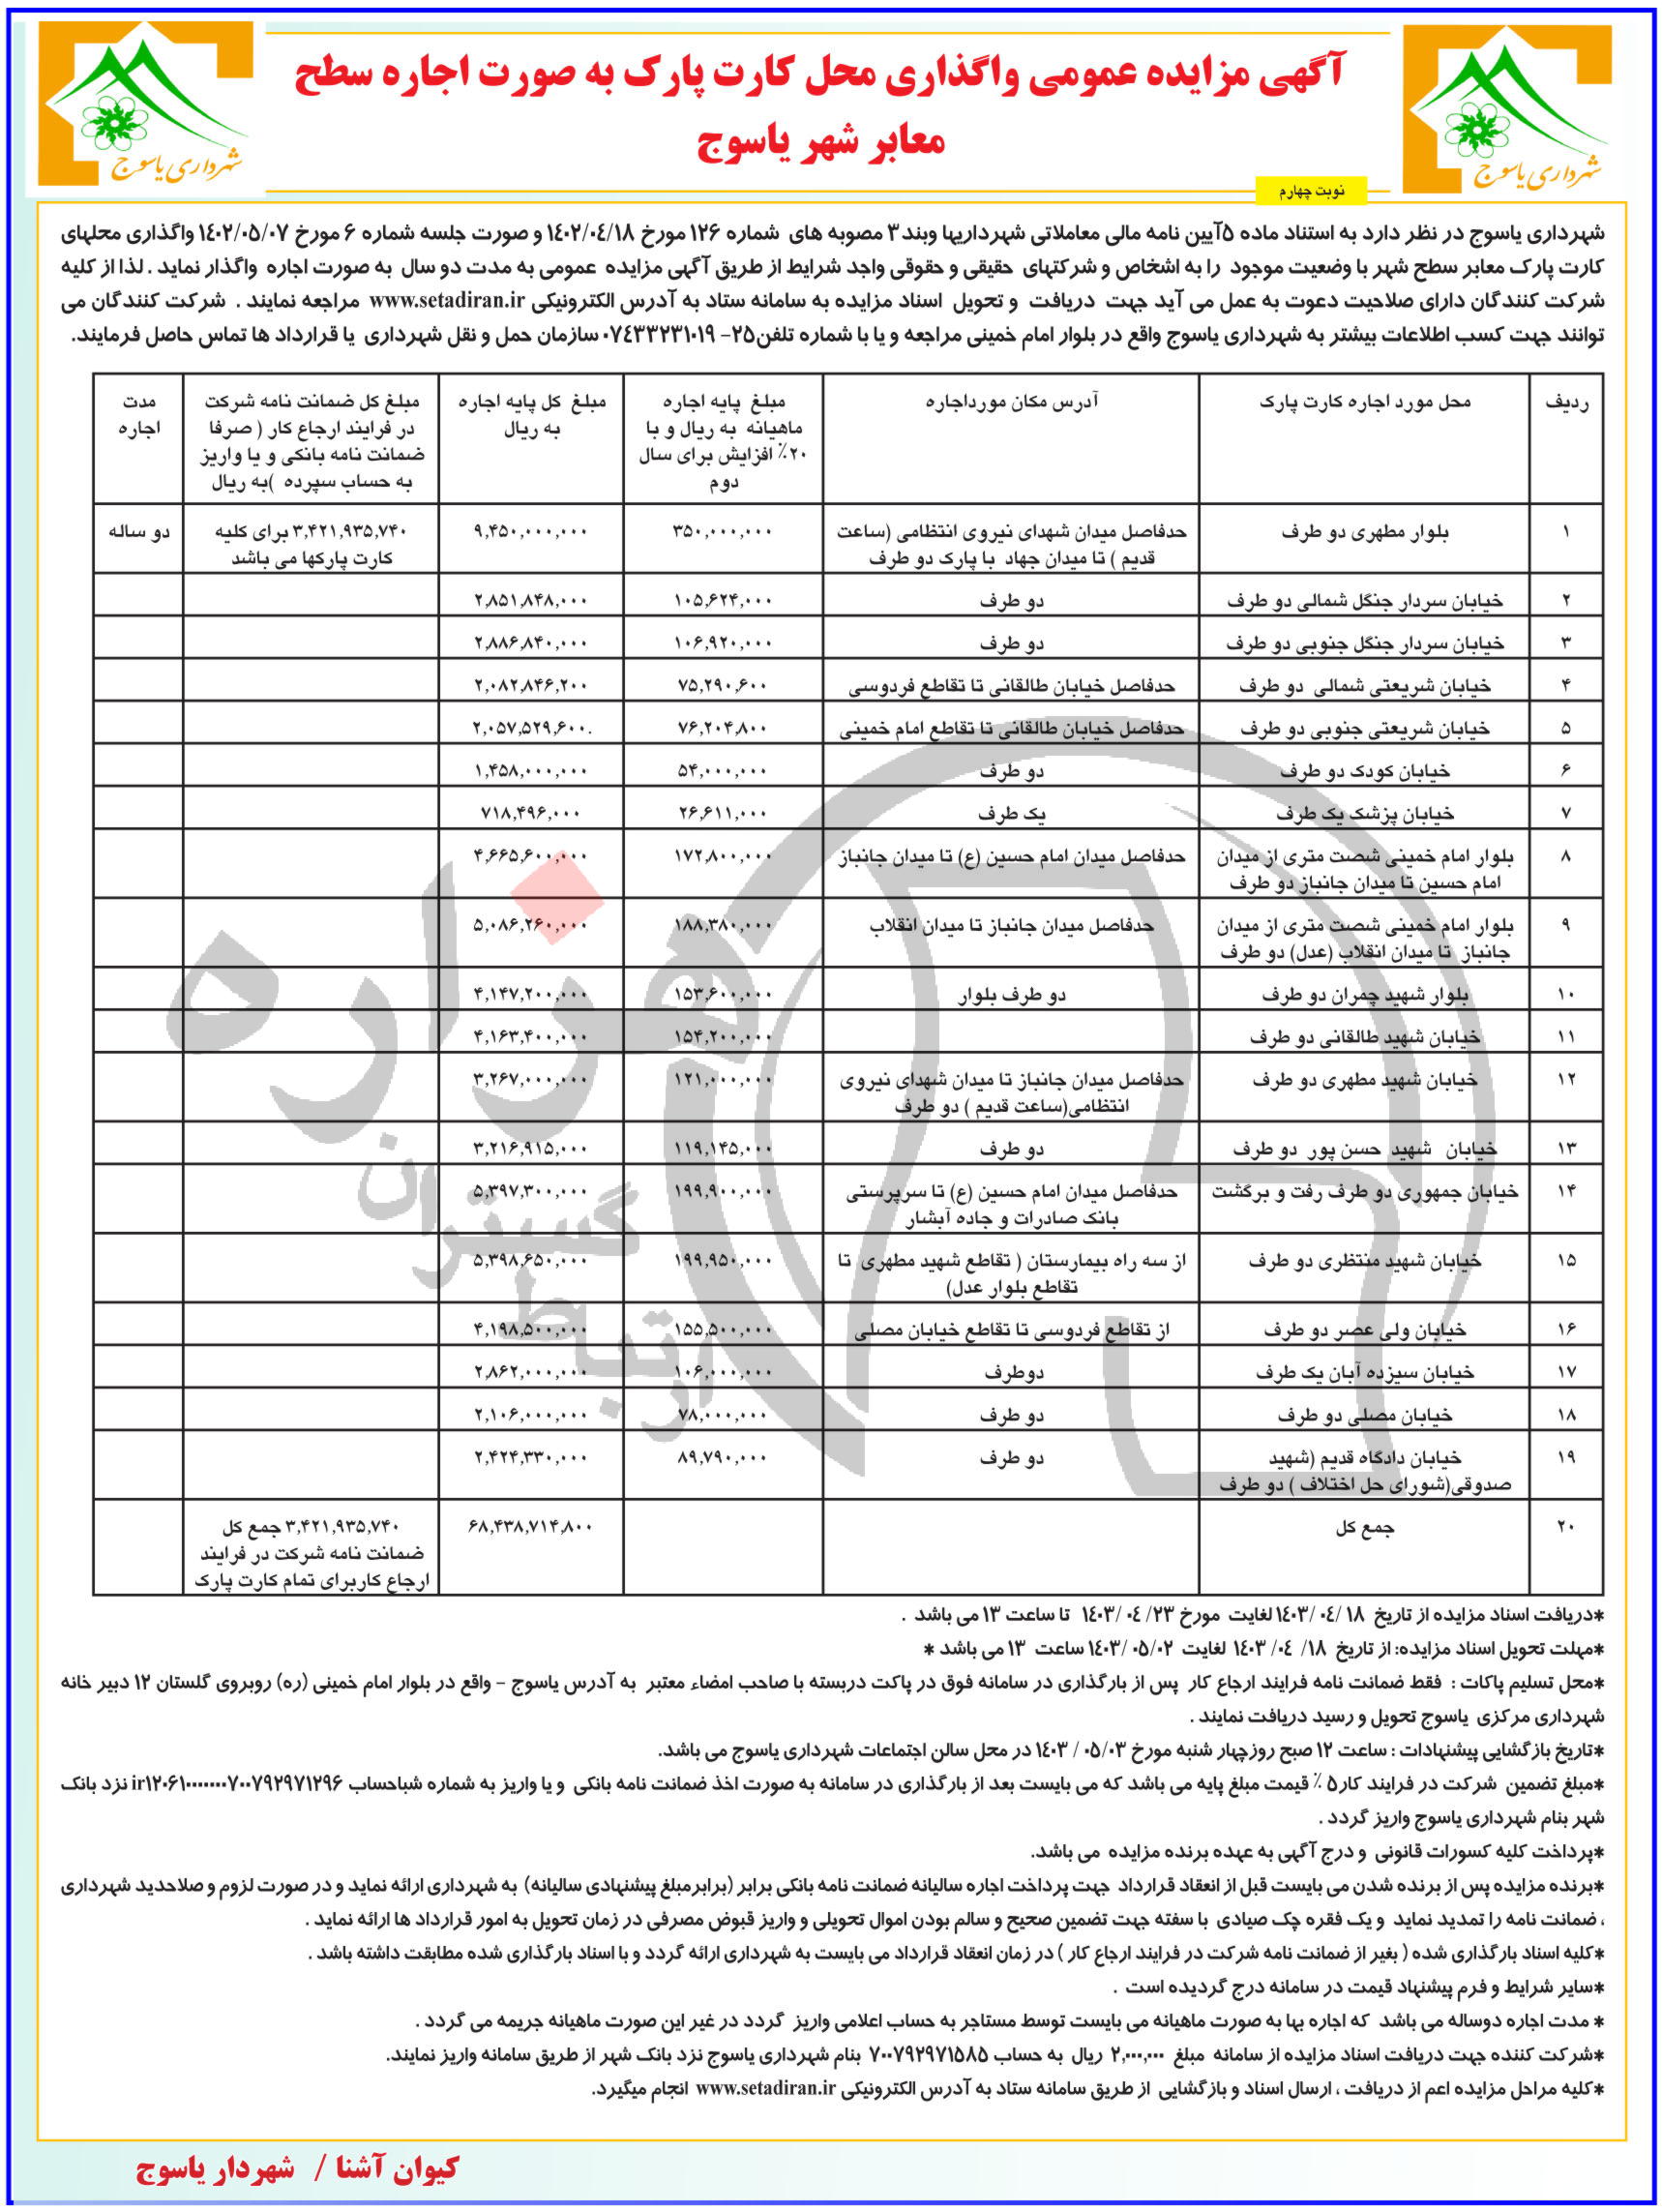 آگهی مزایده عمومی واگذاری محل کارت پارک به صورت اجاره سطح
معابر شهر یاسوج
شهرداری یاسوج
شهرداری یاسوج
نوبت چهارم
شهرداری یاسوج در نظر دارد به استناد ماده ۵آیین نامه مالی معاملاتی شهرداریها وبند۳ مصوبه های شماره ۱۲۶ مورخ ۱۴۰۲/۰۴/۱۸ و صورت جلسه شماره ۶ مورخ ۱۴۰۲/۰۵/۰۷ واگذاری محلهای
کارت پارک معابر سطح شهر با وضعیت موجود را به اشخاص و شرکتهای حقیقی و حقوقی واجد شرایط از طریق آگهی مزایده عمومی به مدت دو سال به صورت اجاره واگذار نماید . لذا از کلیه
شرکت کنندگان دارای صلاحیت دعوت به عمل می آید جهت دریافت و تحویل اسناد مزایده به سامانه ستاد به آدرس الکترونیکی www.setadiran.ir مراجعه نمایند . شرکت کنندگان می
توانند جهت کسب اطلاعات بیشتر به شهرداری یاسوج واقع در بلوار امام خمینی مراجعه و یا با شماره تلفن۲۵- ۰۷۴۳۳۲۳۱۰۱۹ سازمان حمل و نقل شهرداری یا قرارداد ها تماس حاصل فرمایند.
ردیف محل مورد اجاره کارت پارک آدرس مکان مورداجاره مبلغ پایه اجاره مبلغ کل پایه اجاره مبلغ کل ضمانت نامه شرکت مدت
ماهیانه به ریال و با به ریال در فرایند ارجاع کار ( صرفا اجاره
۲۰٪ افزایش برای سال ضمانت نامه بانکی و یا واریز
دوم به حساب سپرده )به ریال
۱ بلوار مطهری دو طرف حدفاصل میدان شهدای نیروی انتظامی (ساعت ۳۵۰,۰۰۰,۰۰۰ ۹,۴۵۰,۰۰۰,۰۰۰ ۳,۴۲۱,۹۳۵,۷۴۰ برای کلیه دو ساله
قدیم ) تا میدان جهاد با پارک دو طرف کارت پارکها می باشد
۲ خیابان سردار جنگل شمالی دو طرف دو طرف ۱۰۵,۶۲۴,۰۰۰ ۲,۸۵۱,۸۴۸,۰۰۰
۳ خیابان سردار جنگل جنوبی دو طرف دو طرف ۱۰۶,۹۲۰,۰۰۰ ۲,۸۸۶,۸۴۰,۰۰۰
۴ خیابان شریعتی شمالی دو طرف حدفاصل خیابان طالقانی تا تقاطع فردوسی ۷۵,۲۹۰,۶۰۰ ۲,۰۸۲,۸۴۶,۲۰۰
۵ خیابان شریعتی جنوبی دو طرف حدفاصل خیابان طالقانی تا تقاطع امام خمینی ۷۶,۲۰۴,۸۰۰ ۲,۰۵۷,۵۲۹,۶۰۰.
۶ خیابان کودک دو طرف دو طرف ۵۴,۰۰۰,۰۰۰ ۱,۴۵۸,۰۰۰,۰۰۰
۷ خیابان پزشک یک طرف یک طرف ۲۶,۶۱۱,۰۰۰ ۷۱۸,۴۹۶,۰۰۰
۸ بلوار امام خمینی شصت متری از میدان حدفاصل میدان امام حسین (ع) تا میدان جانباز ۱۷۲,۸۰۰,۰۰۰ ۴,۶۶۵,۶۰۰,۰۰۰
امام حسین تا میدان جانباز دو طرف
۹ بلوار امام خمینی شصت متری از میدان حدفاصل میدان جانباز تا میدان انقلاب ۱۸۸,۳۸۰,۰۰۰ ۵,۰۸۶,۲۶۰,۰۰۰
جانباز تا میدان انقلاب (عدل) دو طرف
۱۰ بلوار شهید چمران دو طرف دو طرف بلوار ۱۵۳,۶۰۰,۰۰۰ ۴,۱۴۷,۲۰۰,۰۰۰
۱۱ خیابان شهید طالقانی دو طرف ۱۵۴,۲۰۰,۰۰۰ ۴,۱۶۳,۴۰۰,۰۰۰
۱۲ خیابان شهید مطهری دو طرف حدفاصل میدان جانباز تا میدان شهدای نیروی ۱۲۱,۰۰۰,۰۰۰ ۳,۲۶۷,۰۰۰,۰۰۰
انتظامی(ساعت قدیم ) دو طرف
۱۳ خیابان شهید حسن پور دو طرف دو طرف ۱۱۹,۱۴۵,۰۰۰ ۳,۲۱۶,۹۱۵,۰۰۰
۱۴ خیابان جمهوری دو طرف رفت و برگشت حدفاصل میدان امام حسین (ع) تا سرپرستی ۱۹۹,۹۰۰,۰۰۰ ۵,۳۹۷,۳۰۰,۰۰۰
بانک صادرات و جاده آبشار
۱۵ خیابان شهید منتظری دو طرف از سه راه بیمارستان ( تقاطع شهید مطهری تا ۱۹۹,۹۵۰,۰۰۰ ۵,۳۹۸,۶۵۰,۰۰۰
تقاطع بلوار عدل)
۱۶ خیابان ولی عصر دو طرف از تقاطع فردوسی تا تقاطع خیابان مصلی ۱۵۵,۵۰۰,۰۰۰ ۴,۱۹۸,۵۰۰,۰۰۰
۱۷ خیابان سیزده آبان یک طرف دوطرف ۱۰۶,۰۰۰,۰۰۰ ۲,۸۶۲,۰۰۰,۰۰۰
۱۸ خیابان مصلی دو طرف دو طرف ۷۸,۰۰۰,۰۰۰ ۲,۱۰۶,۰۰۰,۰۰۰
۱۹ خیابان دادگاه قدیم (شهید دو طرف ۸۹,۷۹۰,۰۰۰ ۲,۴۲۴,۳۳۰,۰۰۰
صدوقی(شورای حل اختلاف ) دو طرف
۲۰ جمع کل ۶۸,۴۳۸,۷۱۴,۸۰۰ ۳,۴۲۱,۹۳۵,۷۴۰ جمع کل
ضمانت نامه شرکت در فرایند
ارجاع کاربرای تمام کارت پارک
هزاره
گستران
ارتباط
*دریافت اسناد مزایده از تاریخ ۱۴۰۳/۰۴/۱۸ لغایت مورخ ۱۴۰۳/۰۴/۲۳ تا ساعت ۱۳ می باشد .
*مهلت تحویل اسناد مزایده: از تاریخ ۱۴۰۳/۰۴/۱۸ لغایت ۱۴۰۳/۰۵/۰۲ ساعت ۱۳ می باشد *
*محل تسلیم پاکات : فقط ضمانت نامه فرایند ارجاع کار پس از بارگذاری در سامانه فوق در پاکت دربسته با صاحب امضاء معتبر به آدرس یاسوج – واقع در بلوار امام خمینی (ره) روبروی گلستان ۱۲ دبیر خانه
شهرداری مرکزی یاسوج تحویل و رسید دریافت نمایند .
*تاریخ بازگشایی پیشنهادات : ساعت ۱۲ صبح روزچهار شنبه مورخ ۱۴۰۳/۰۵/۰۳ در محل سالن اجتماعات شهرداری یاسوج می باشد.
*مبلغ تضمین شرکت در فرایند کار۵ ٪ قیمت مبلغ پایه می باشد که می بایست بعد از بارگذاری در سامانه به صورت اخذ ضمانت نامه بانکی و یا واریز به شماره شباحساب ir۱۲۰۶۱۰۰۰۰۰۰۰۷۰۰۷۹۲۹۷۱۲۹۶ نزد بانک
شهر بنام شهرداری یاسوج واریز گردد .
*پرداخت کلیه کسورات قانونی و درج آگهی به عهده برنده مزایده می باشد.
*برنده مزایده پس از برنده شدن می بایست قبل از انعقاد قرارداد جهت پرداخت اجاره سالیانه ضمانت نامه بانکی برابر (برابرمبلغ پیشنهادی سالیانه) به شهرداری ارائه نماید و در صورت لزوم و صلاحدید شهرداری
، ضمانت نامه را تمدید نماید و یک فقره چک صیادی با سفته جهت تضمین صحیح و سالم بودن اموال تحویلی و واریز قبوض مصرفی در زمان تحویل به امور قرارداد ها ارائه نماید .
*کلیه اسناد بارگذاری شده ( بغیر از ضمانت نامه شرکت در فرایند ارجاع کار ) در زمان انعقاد قرارداد می بایست به شهرداری ارائه گردد و با اسناد بارگذاری شده مطابقت داشته باشد .
*سایر شرایط و فرم پیشنهاد قیمت در سامانه درج گردیده است .
* مدت اجاره دوساله می باشد که اجاره بها به صورت ماهیانه می بایست توسط مستاجر به حساب اعلامی واریز گردد در غیر این صورت ماهیانه جریمه می گردد .
*شرکت کننده جهت دریافت اسناد مزایده از سامانه مبلغ ۲,۰۰۰,۰۰۰ ریال به حساب ۷۰۰۷۹۲۹۷۱۵۸۵ بنام شهرداری یاسوج نزد بانک شهر از طریق سامانه واریز نمایند.
*کلیه مراحل مزایده اعم از دریافت ، ارسال اسناد و بازگشایی از طریق سامانه ستاد به آدرس الکترونیکی www.setadiran.ir انجام میگیرد.
کیوان آشنا / شهردار یاسوج